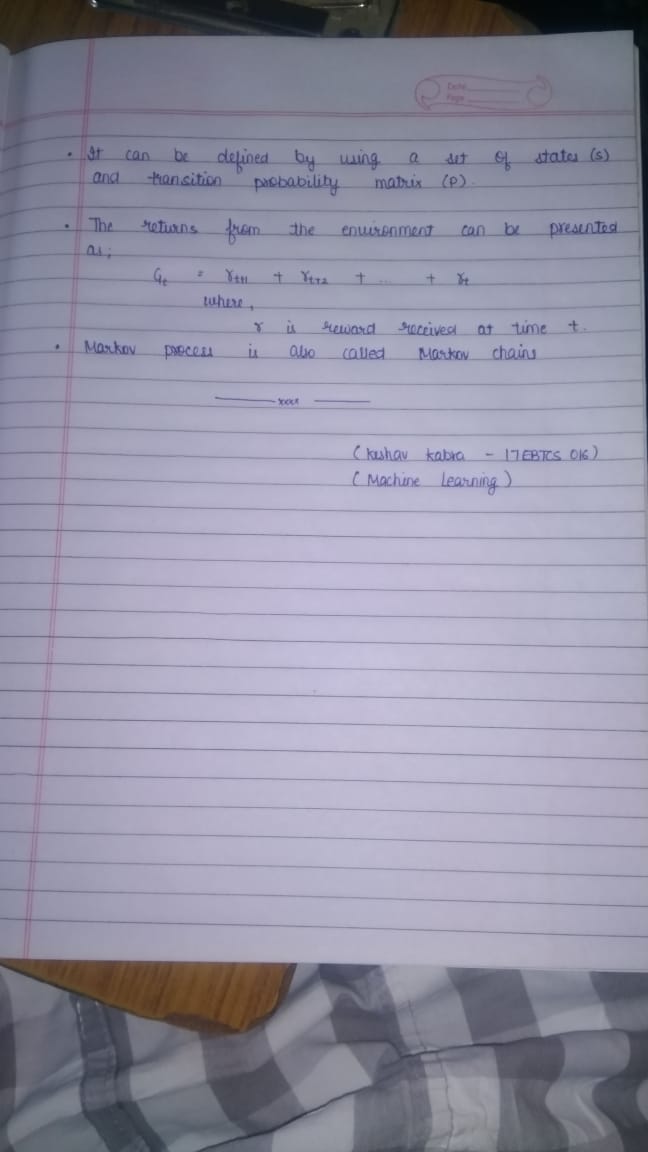 Date
Page
• It can be defined by using a set of states (s)
and transition probability matrix (P).
• The returns from the environment can be presented
as;
Gt = rt+1 + rt+2 + ... + rt
where,
r is reward received at time t.
• Markov process is also called Markov chains
(Kushav Kabra - 17EBTCS 016)
(Machine Learning)